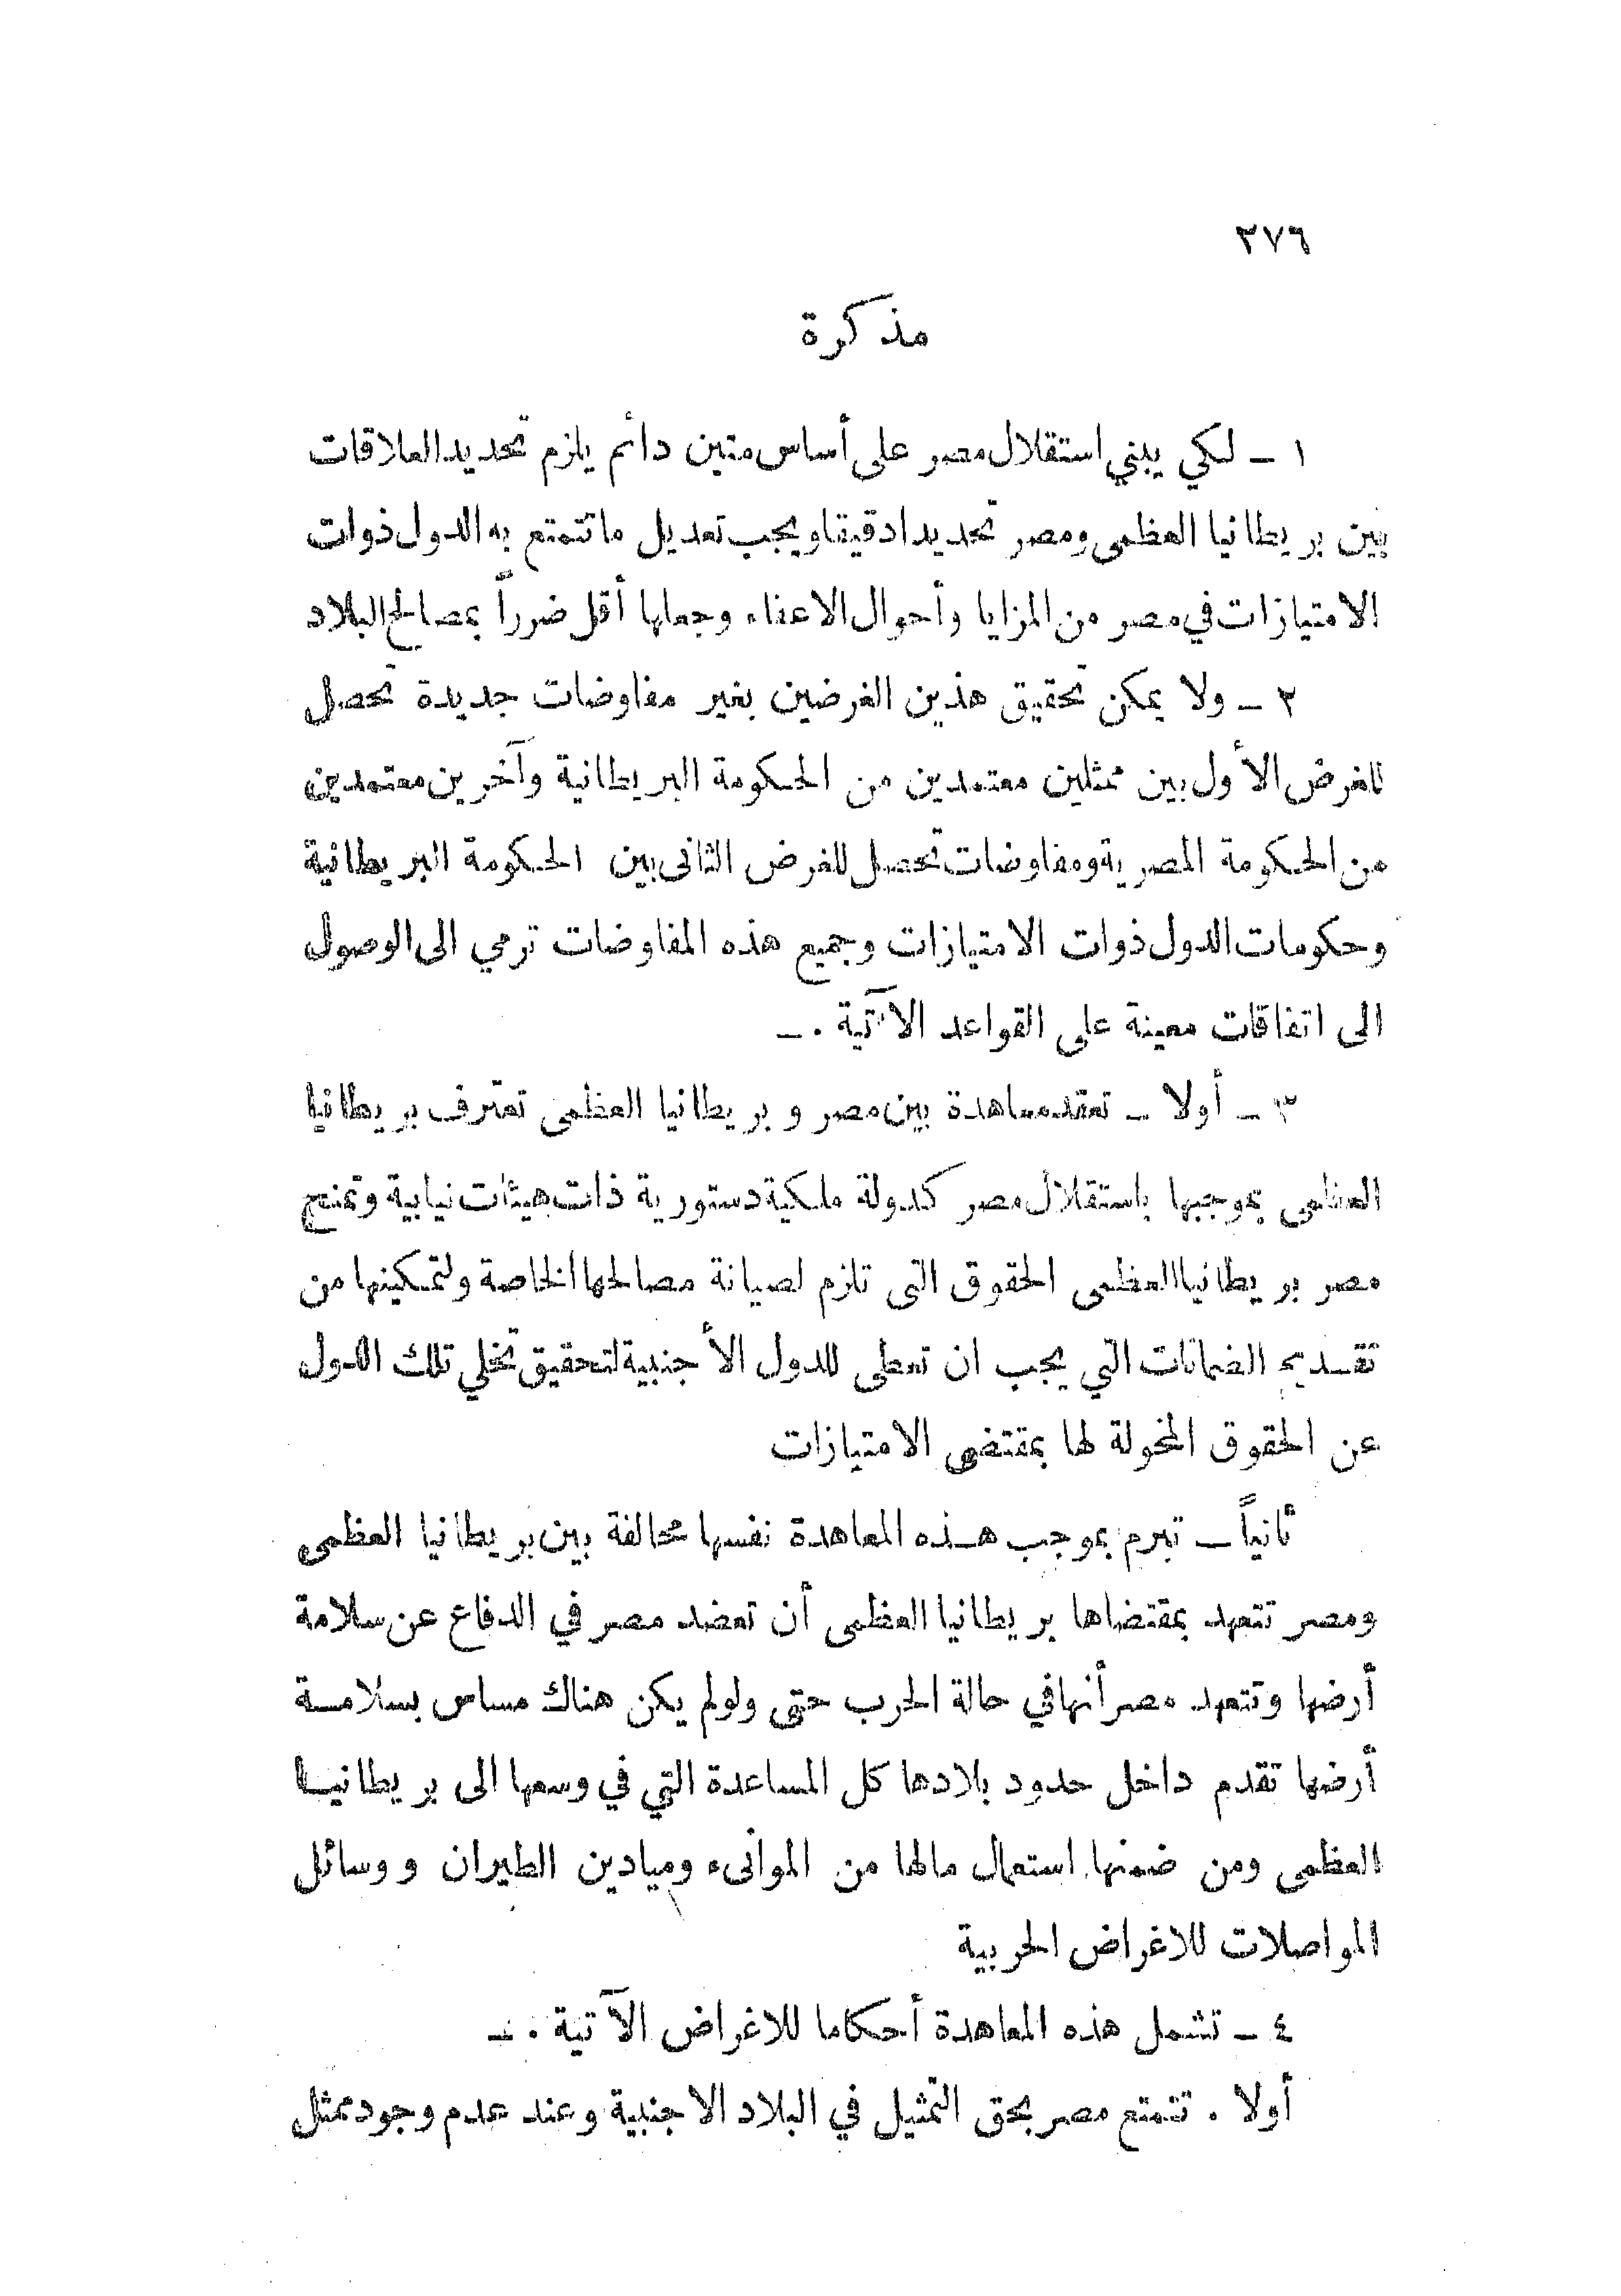 ٢٧٦
مذكرة
١ ـ لكي يبني استقلال مصر على أساس متين دائم يلزم تحديد العلاقات
بين بريطانيا العظمى ومصر تحديدا دقيقا ويجب تعديل ما تتمتع به الدول ذوات
الامتيازات في مصر من المزايا وأحوال الاعفاء وجعلها أقل ضرراً بمصالح البلاد
٢ ـ ولا يمكن تحقيق هذين الغرضين بغير مفاوضات جديدة تحصل
للغرض الأول بين ممثلين معتمدين من الحكومة البريطانية وآخرين معتمدين
من الحكومة المصرية ومفاوضات تحصل للغرض الثانى بين الحكومة البريطانية
وحكومات الدول ذوات الامتيازات وجميع هذه المفاوضات ترمي الى الوصول
الى اتفاقات معينة على القواعد الآتية . ـ
٣ ـ أولا ـ تعقد معاهدة بين مصر وبريطانيا العظمى تعترف بريطانيا
العظمى بموجبها باستقلال مصر كدولة ملكية دستورية ذات هيئات نيابية وتمنح
مصر بريطانيا العظمى الحقوق التى تلزم لصيانة مصالحها الخاصة ولتمكينها من
تقديم الضمانات التي يجب ان تعطى للدول الأجنبية لتحقيق تخلي تلك الدول
عن الحقوق المخولة لها بمقتضى الامتيازات
ثانياً ـ تبرم بموجب هذه المعاهدة نفسها محالفة بين بريطانيا العظمى
ومصر تتعهد بمقتضاها بريطانيا العظمى أن تعضد مصر في الدفاع عن سلامة
أرضها وتتعهد مصر أنها في حالة الحرب حتى ولو لم يكن هناك مساس بسلامة
أرضها تقدم داخل حدود بلادها كل المساعدة التي في وسعها الى بريطانيا
العظمى ومن ضمنها استعمال مالها من الموانىء وميادين الطيران ووسائل
المواصلات للاغراض الحربية
٤ ـ تشمل هذه المعاهدة أحكاما للاغراض الآتية . ـ
أولا . تتمتع مصر بحق التمثيل في البلاد الاجنبية وعند عدم وجود ممثل